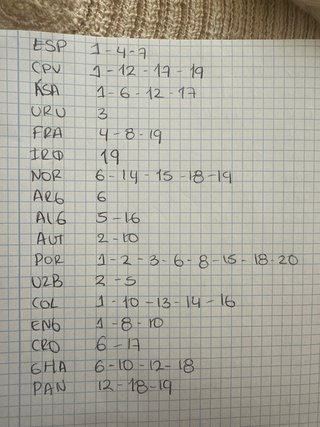 ESP 1-4-7
CPV 1-12-17-19
KSA 1-6-12-17
URU 3
FRA 4-8-19
IRQ 19
NOR 6-14-15-18-19
ARG 6
ALG 5-16
AUT 2-10
POR 1-2-3-6-8-15-18-20
UZB 2-5
COL 1-10-13-14-16
ENG 1-8-10
CRO 6-17
GHA 6-10-12-18
PAN 12-18-19